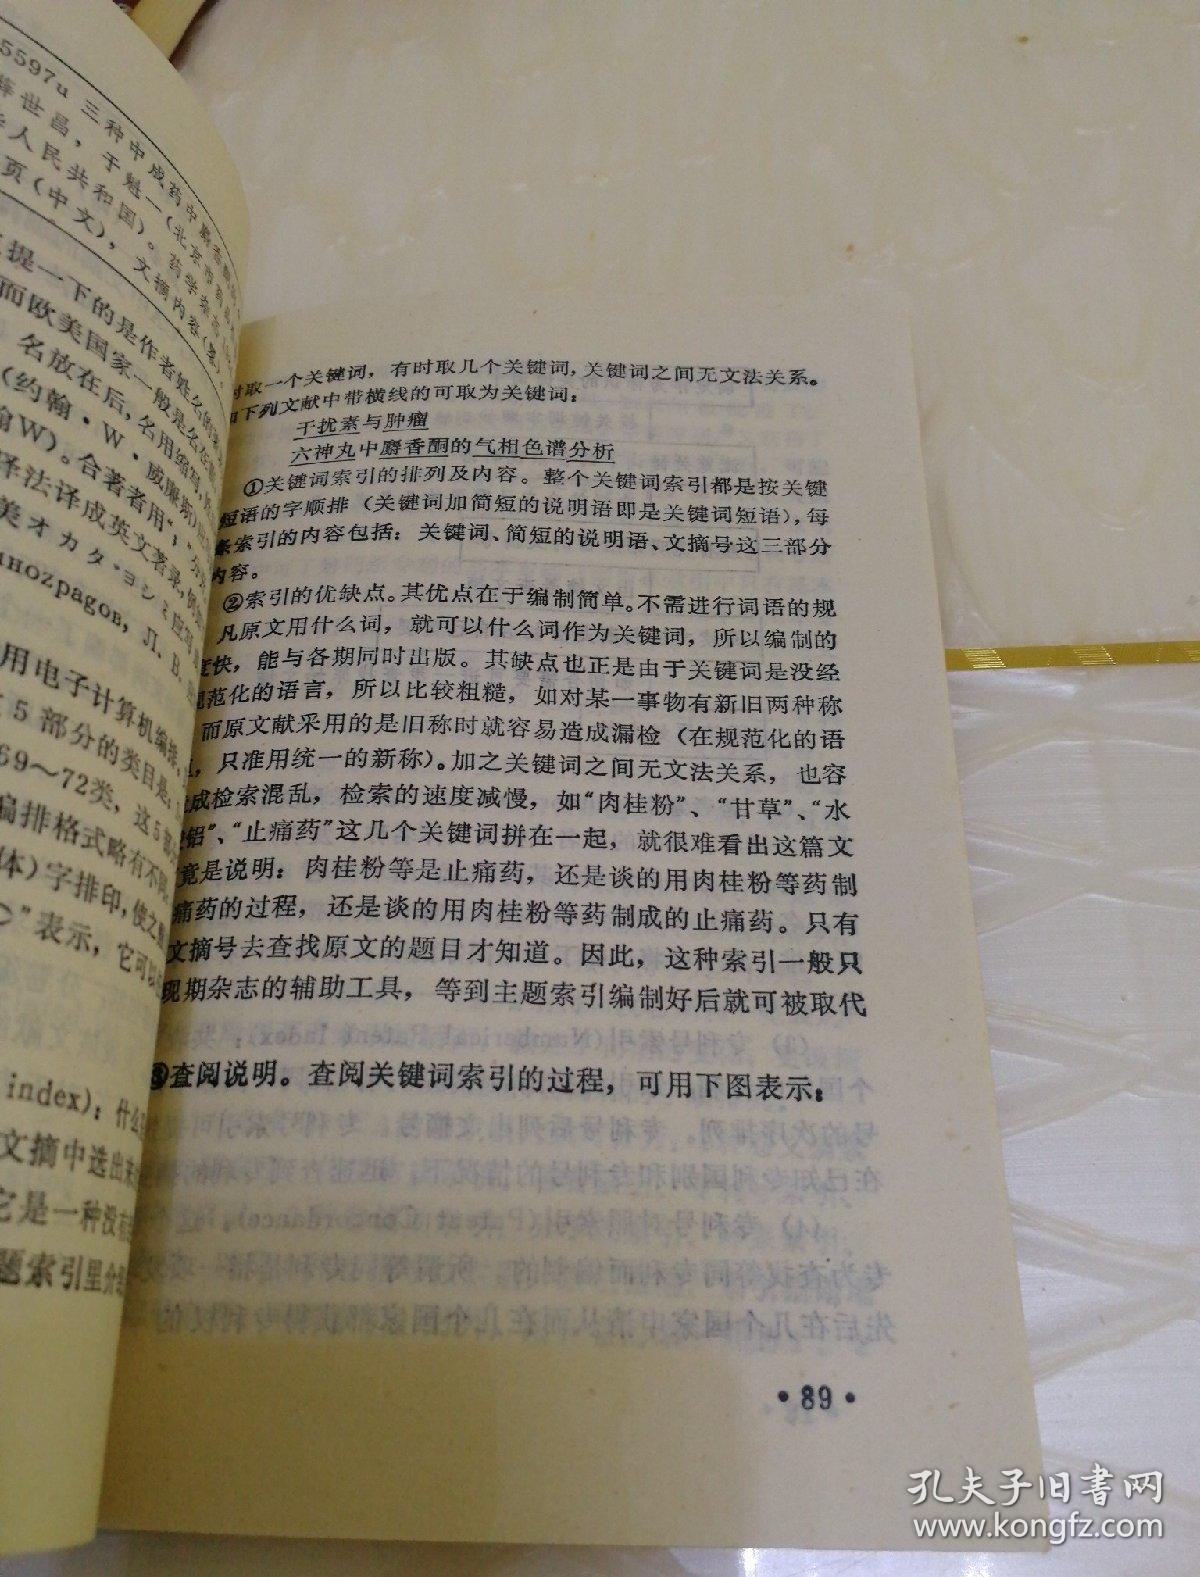 5597u 三种中成药中麝香酮
世昌，于魁一(北京
人民共和国)。药学
页(中文)，文摘内容(
提一下的是作者姓名的
而欧美国家一般是名在
名放在后，名用缩写,
(约翰·W·威廉斯)
W)。合著者用“;”
译法译成英文著录,例
美オカタ・ヨシミ应
иноzраgов, Л. В.
用电子计算机编排,
5部分的类目是:
69～72类，这5部
编排格式略有不同
体)字排印,使之
”表示，它可以
index)：什么
文摘中选出来
它是一种没有
题索引里介绍
时取一个关键词，有时取几个关键词,关键词之间无文法关系。
下列文献中带横线的可取为关键词：
干扰素与肿瘤
六神丸中麝香酮的气相色谱分析
①关键词索引的排列及内容。整个关键词索引都是按关键
短语的字顺排（关键词加简短的说明语即是关键词短语）,每
条索引的内容包括：关键词、简短的说明语、文摘号这三部分
内容。
②索引的优缺点。其优点在于编制简单。不需进行词语的规
凡原文用什么词，就可以什么词作为关键词，所以编制的
快，能与各期同时出版。其缺点也正是由于关键词是没经
规范化的语言，所以比较粗糙，如对某一事物有新旧两种称
而原文献采用的是旧称时就容易造成漏检（在规范化的语
，只准用统一的新称）。加之关键词之间无文法关系，也容
成检索混乱，检索的速度减慢，如“肉桂粉”、“甘草”、“水
铝”、“止痛药”这几个关键词拼在一起，就很难看出这篇文
竟是说明：肉桂粉等是止痛药，还是谈的用肉桂粉等药制
痛药的过程，还是谈的用肉桂粉等药制成的止痛药。只有
文摘号去查找原文的题目才知道。因此，这种索引一般只
现期杂志的辅助工具，等到主题索引编制好后就可被取代
③查阅说明。查阅关键词索引的过程，可用下图表示：
•89•
孔夫子旧书网
www.kongfz.com